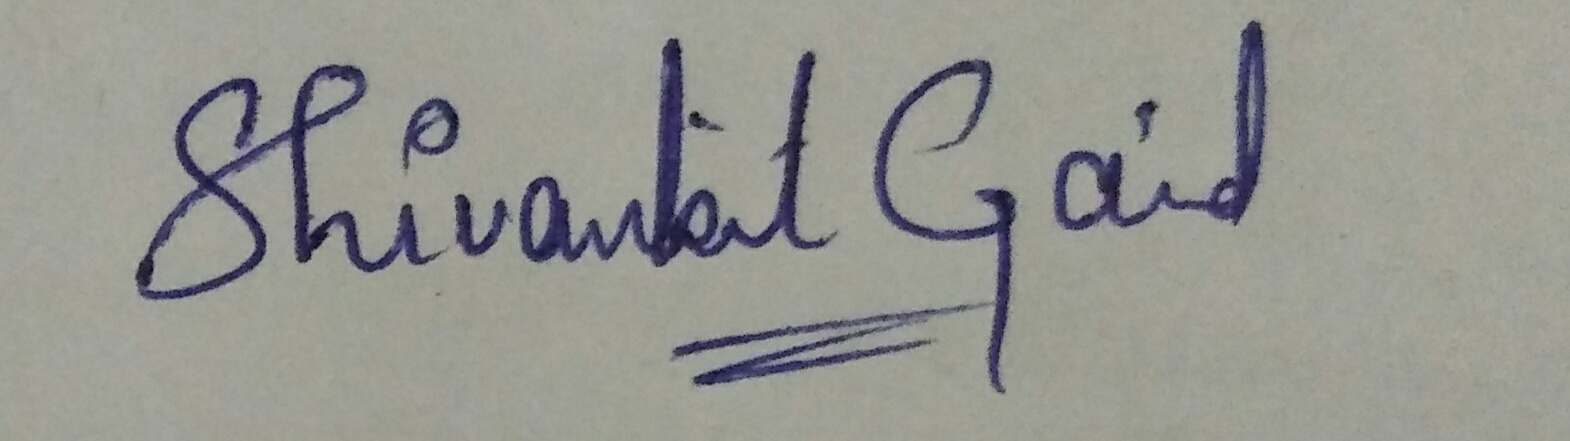 Shivankit Gaid